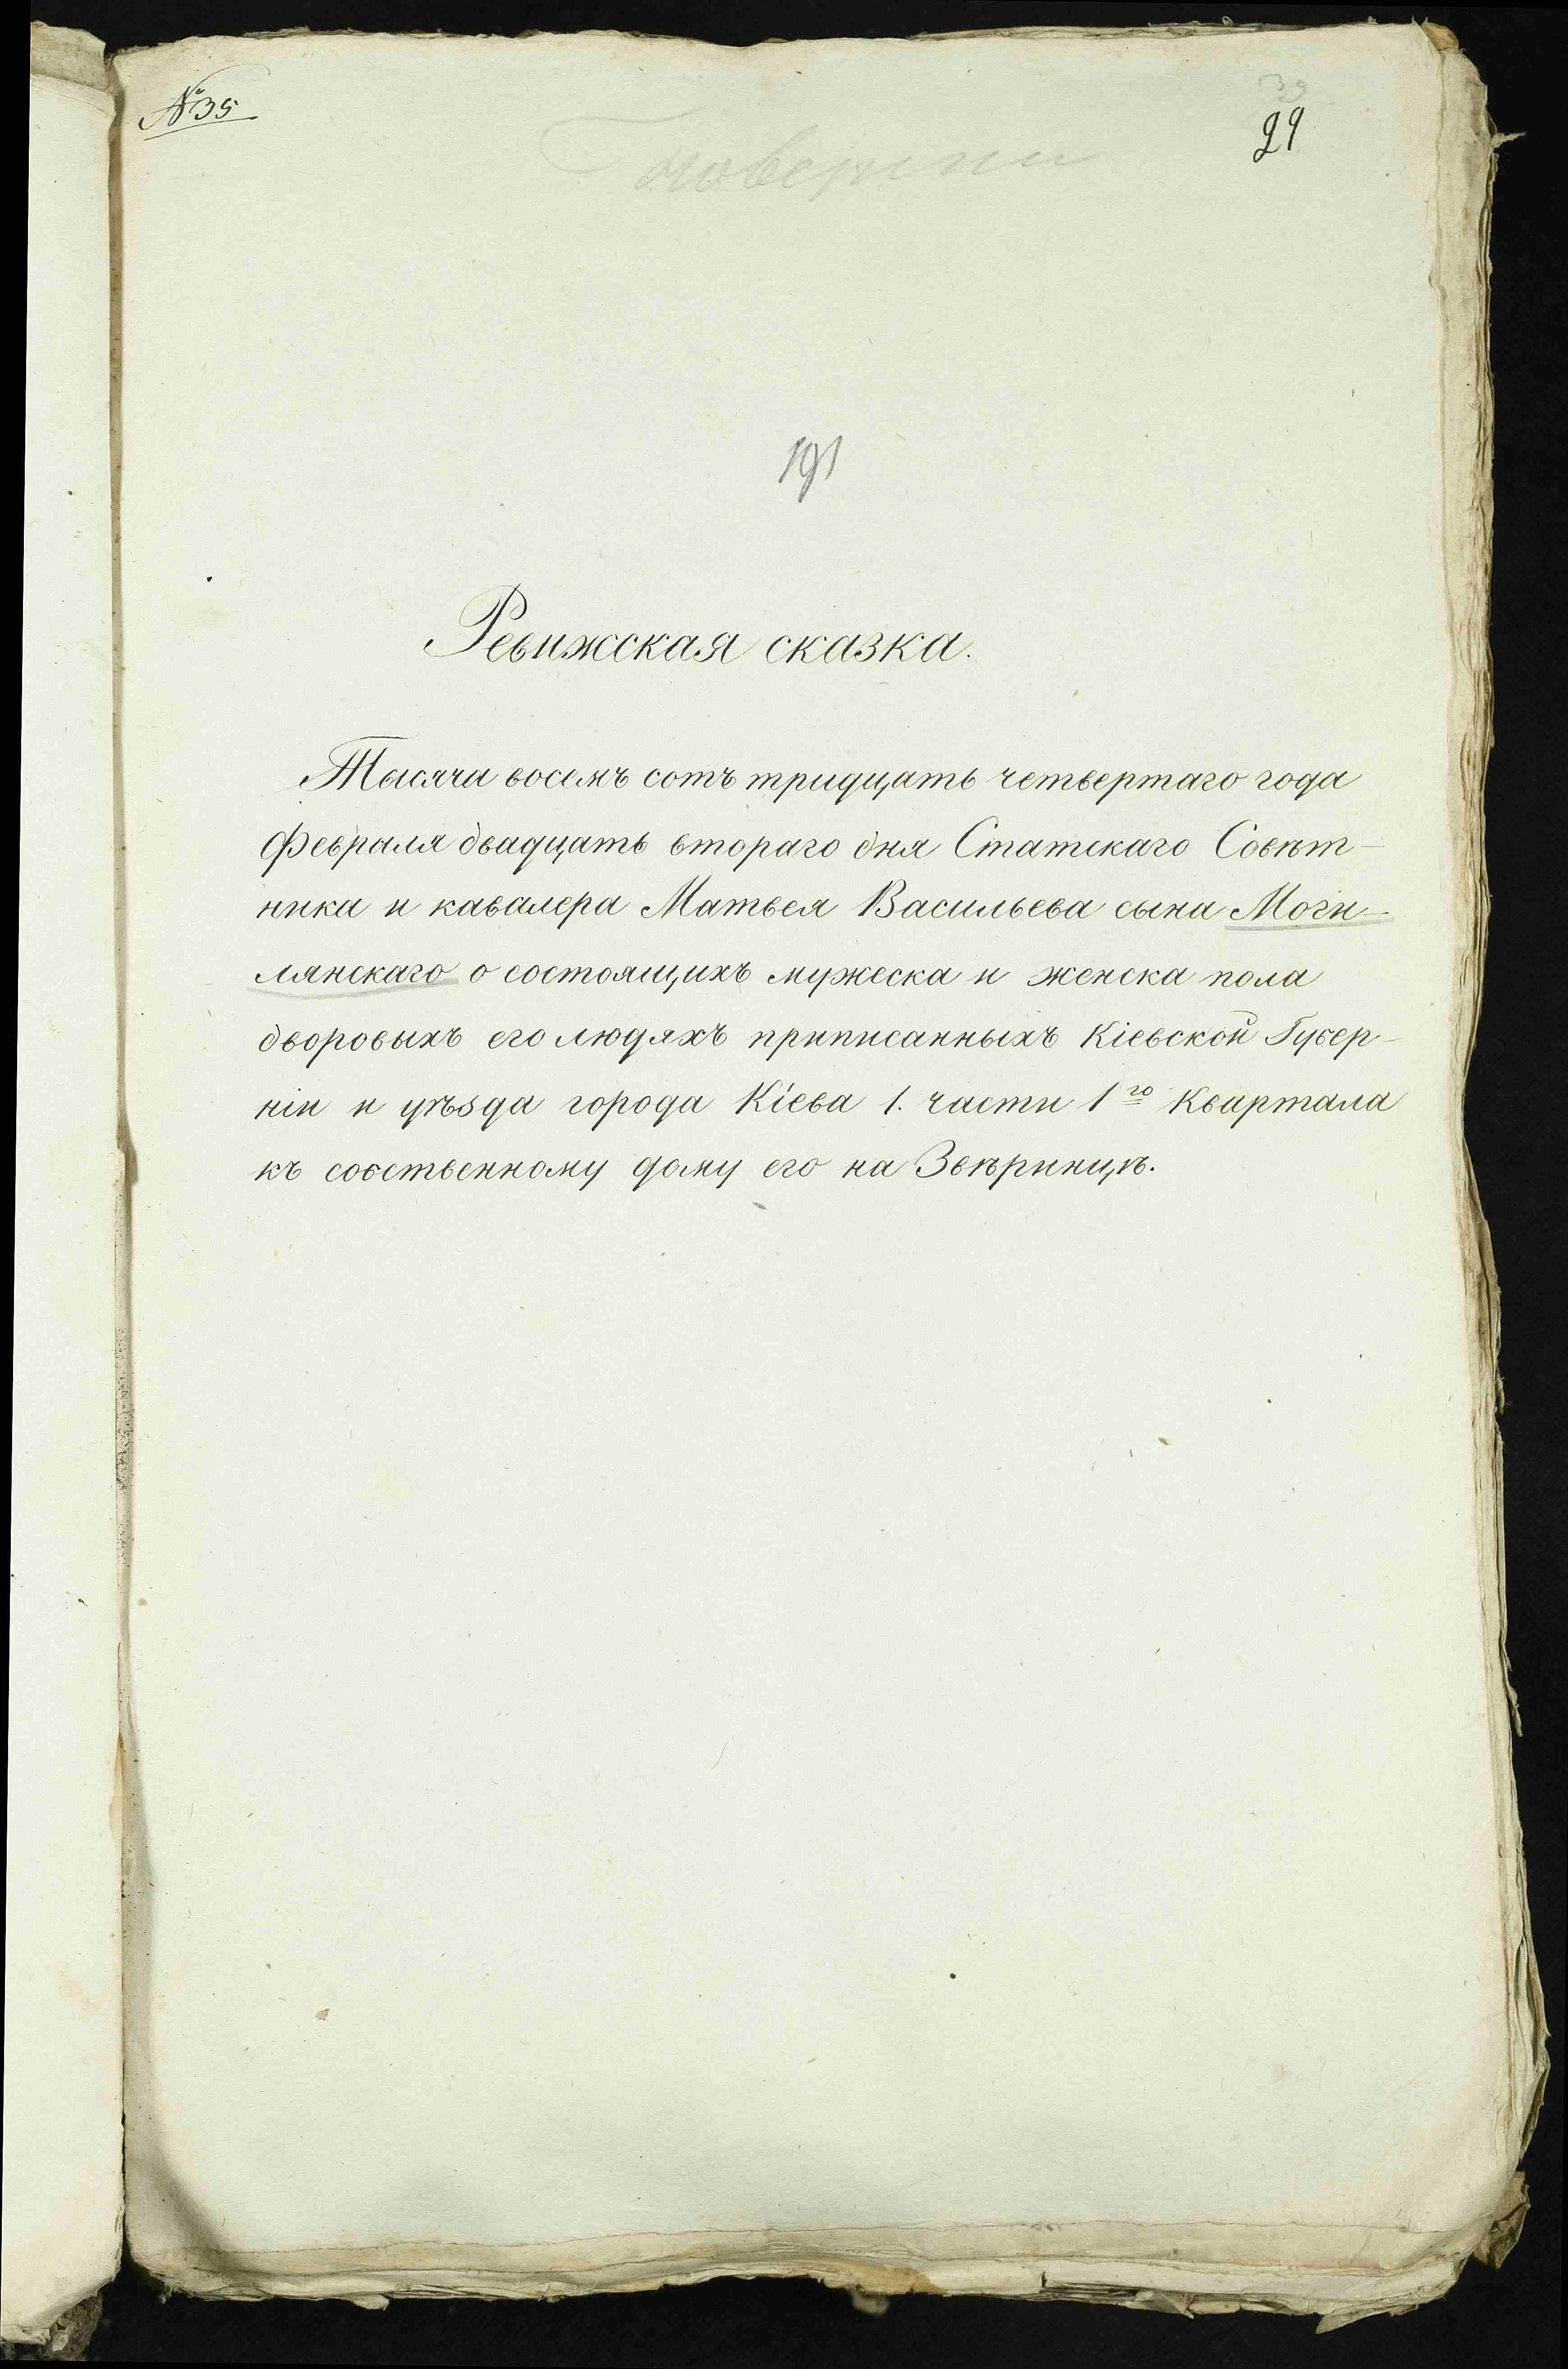 №35
39
29
191
Ревижская сказка.
Тысяча восемъ сотъ тридцать четвертаго года
Февраля двадцать втораго дня Статскаго Совѣт-
ника и кавалера Матвея Васильева сына Моги-
лянскаго о состоящихъ мужеска и женска пола
дворовыхъ его людяхъ приписанныхъ Кіевской Губер-
ніи и уѣзда города Кіева 1. части 1го Квартала
къ собственному дому его на Звѣринцѣ.